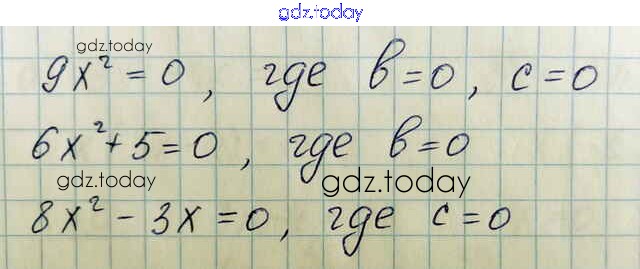 gdz.today
gdz.today
9x² = 0, где b=0, c=0
6x²+5=0, где b=0
gdz.today gdz.today
8x² - 3x = 0, где c=0